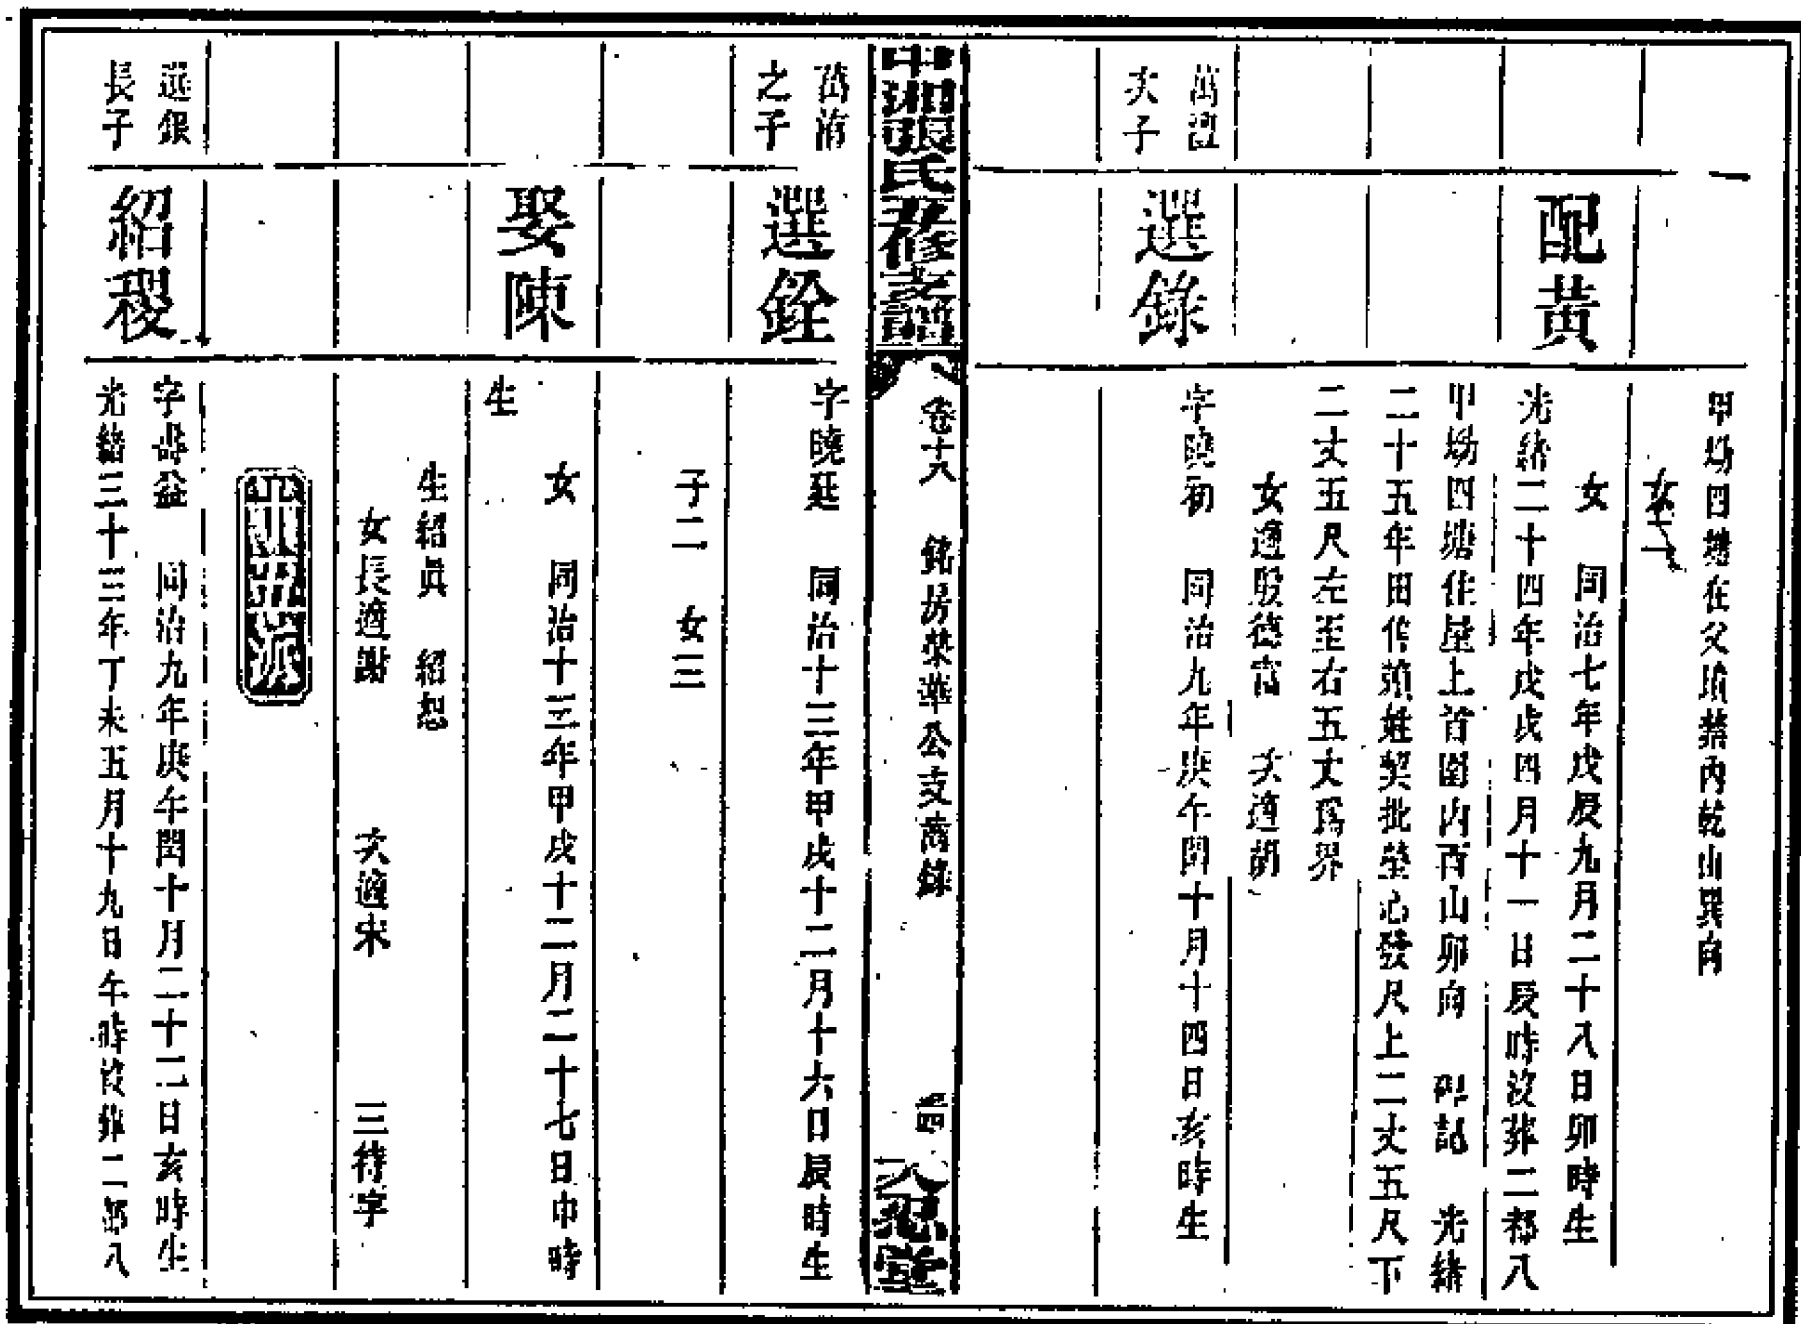 甲塲四塘在父墳禁內乾山巽向
女二
配黃
女 同治七年戊辰九月二十八日卯時生
光緒二十四年戊戌四月十一日辰時沒葬二都八
甲塲四塘住屋上首園內酉山卯向 碑誌 光緒
二十五年田作蘋姓契批塋心發尺上二丈五尺下
二丈五尺左至右五丈爲界
女適殷德富 次適胡
萬
次子
選錄
字曉初 同治九年庚午閏十月十四日亥時生
中湘張氏五修支譜
卷十八 銘房榮華公支萬錄
百忍堂
萬
之子
選銓
字曉廷 同治十三年甲戌十二月十六日辰時生
子二 女三
娶陳
女 同治十三年甲戌十二月二十七日申時
生
生紹眞 紹恕
女長適謝 次適宋 三待字
派
選銀
長子
紹稷
字壽益 同治九年庚午閏十月二十二日亥時生
光緒三十三年丁未五月十九日午時沒葬二都八